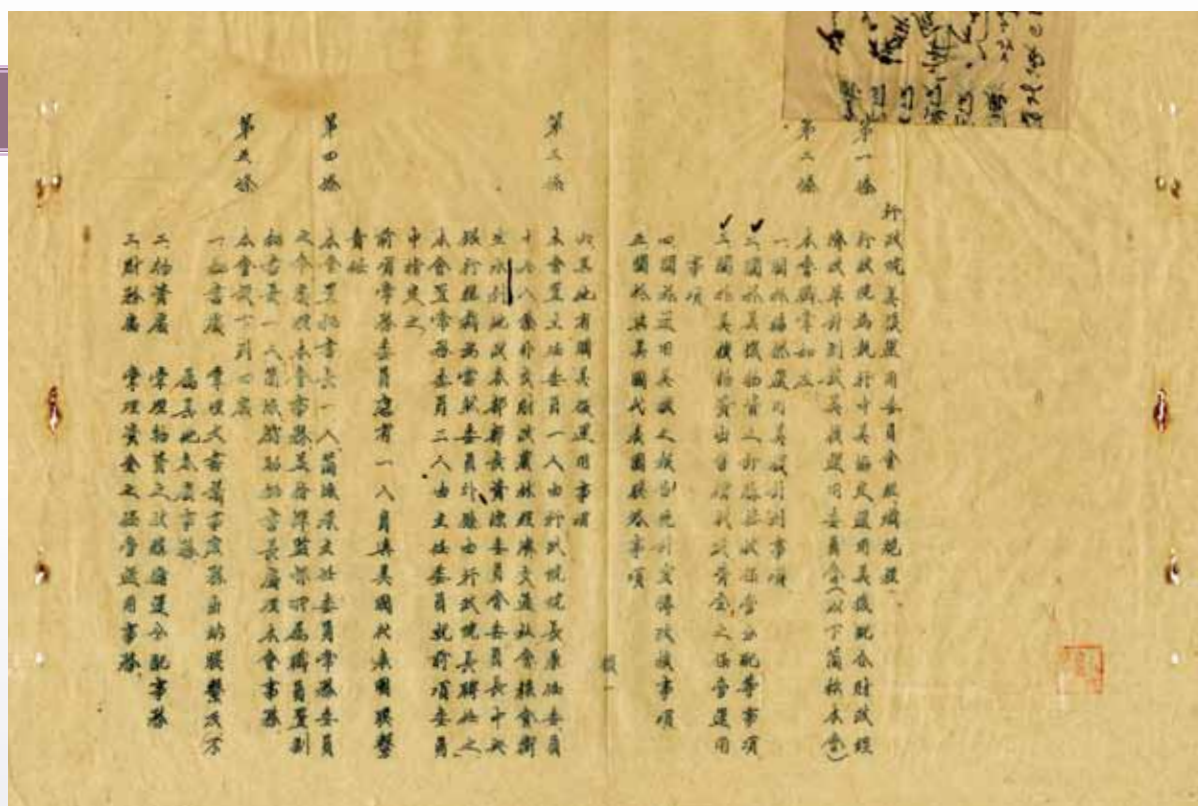 行政院美援運用委員會組織規程
第一條 行政院為執行中美協定運用美援配合財政經
濟改革計劃設美援運用委員會(以下簡稱本會)
第二條 本會職掌如左
一關於統籌運用美援計劃事項
二關於美援物資之申請接收保管分配等事項
三關於美援物資出售得到之資金之保管運用
事項
四關於運用美援之報告統計宣傳及技術事項
五關於與美國代表團聯絡事項
六其他有關美援運用事項
第三條 本會置主任委員一人由行政院院長兼任委員
十至八人除外交財政農林經濟交通社會糧食衛
生水利地政各部部長資源委員會委員長中央
銀行總裁為當然委員外餘由行政院長聘任之
本會置常務委員二人由主任委員就前項委員
中指定之
前項常務委員應有一人負與美國代表團聯繫
責任
第四條 本會置秘書長一人簡派承主任委員常務委員
之命處理本會事務並指揮監督所屬職員置副
秘書長一人簡派襄助秘書長處理本會事務
第五條 本會設下列四處
一秘書處 掌理文書議事庶務出納聯繫及不
屬其他各處事務
二物資處 掌理物資之採購儲運分配事務
三財務處 掌理資金之保管運用事務